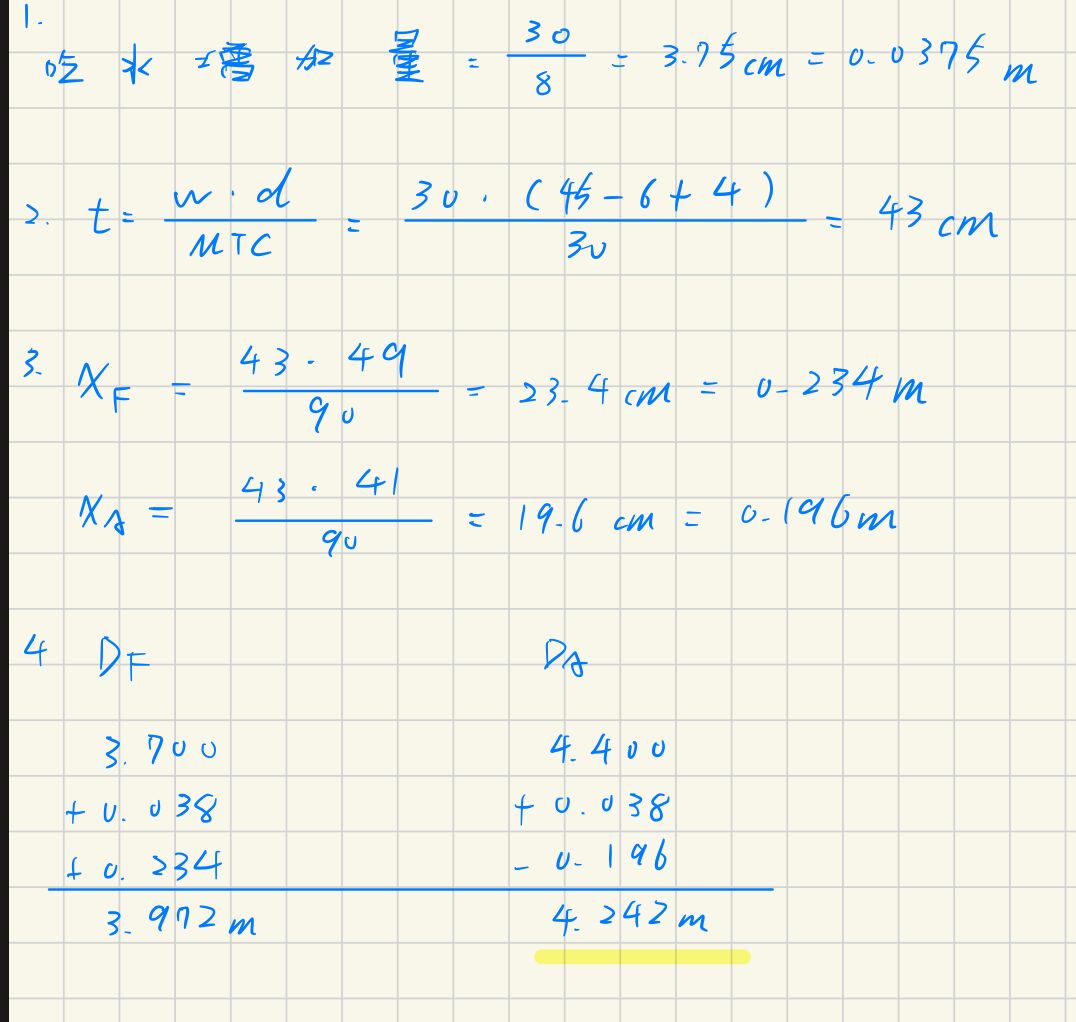 1.
吃水增加量 = 30/8 = 3.75 cm = 0.0375 m
2. t = w · d / MTC = 30 · (45 - 6 + 4) / 30 = 43 cm
3. X_F = 43 · 49 / 90 = 23.4 cm = 0.234 m
X_A = 43 · 41 / 90 = 19.6 cm = 0.196 m
4 D_F D_A
3.700 4.400
+ 0.038 + 0.038
+ 0.234 - 0.196
3.972 m 4.242 m